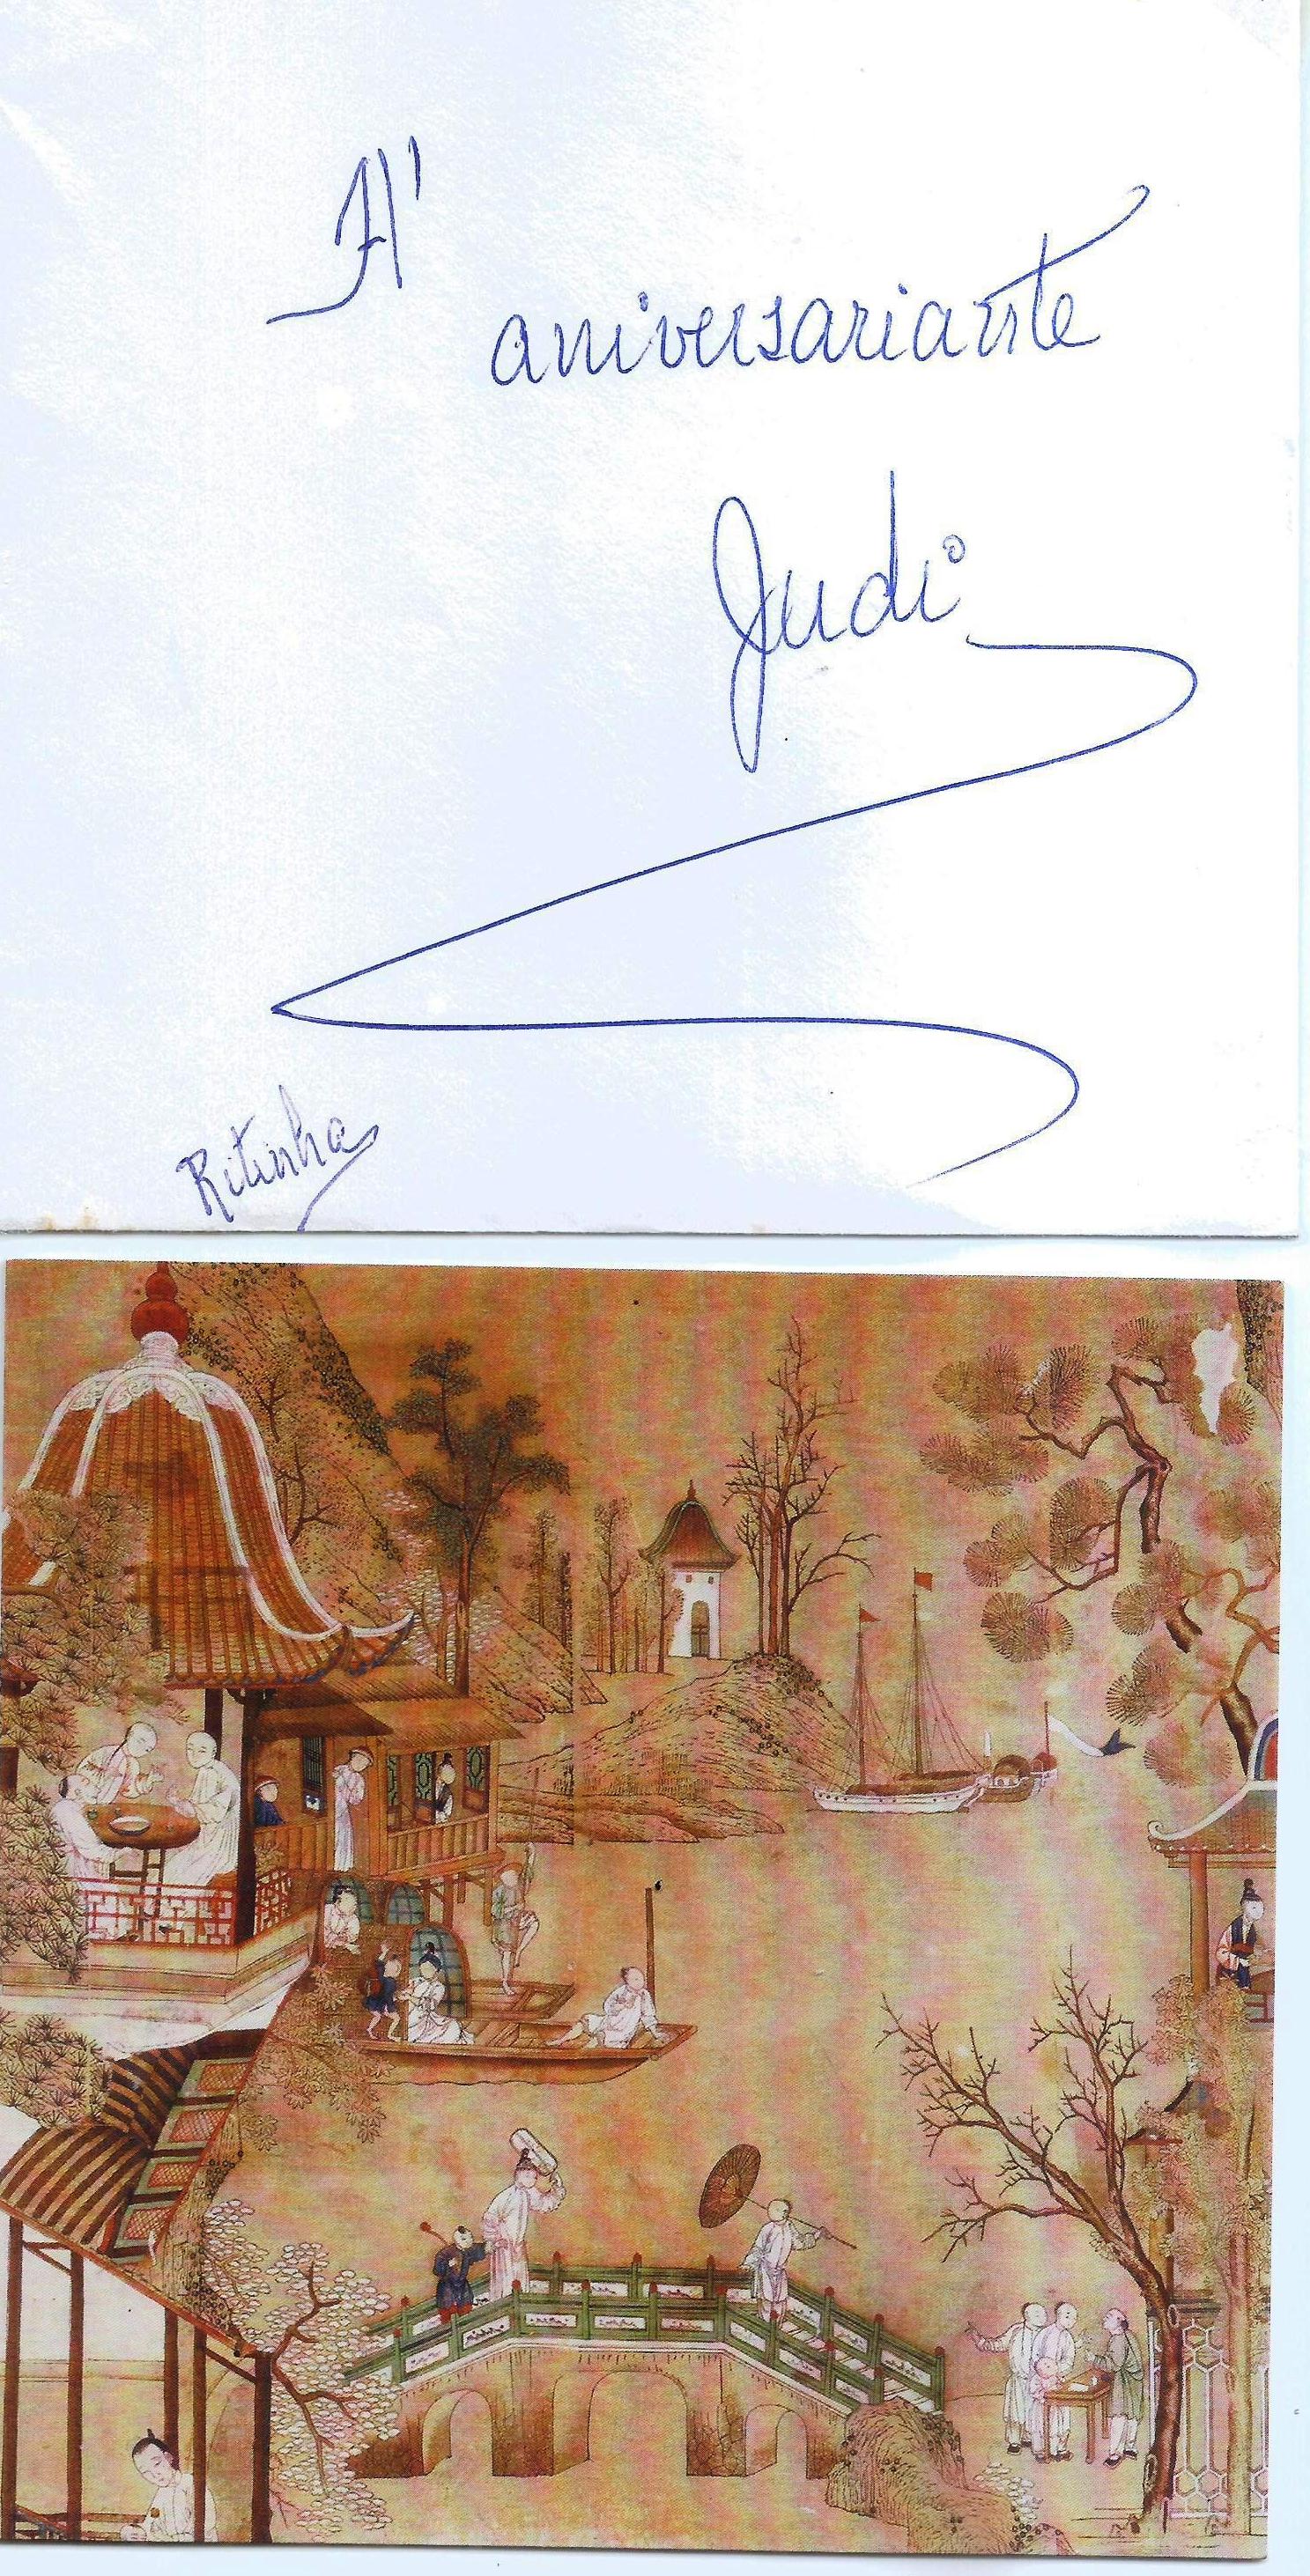 A'
aniversariante
Judi
Ritinha